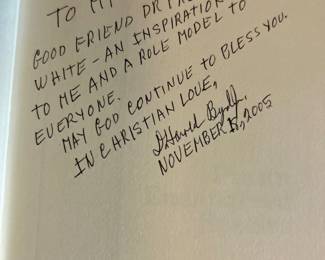 TO MY
GOOD FRIEND DR
WHITE - AN INSPIRATION
TO ME AND A ROLE MODEL TO
EVERYONE.
MAY GOD CONTINUE TO BLESS YOU.
IN CHRISTIAN LOVE,
NOVEMBER 5, 2005